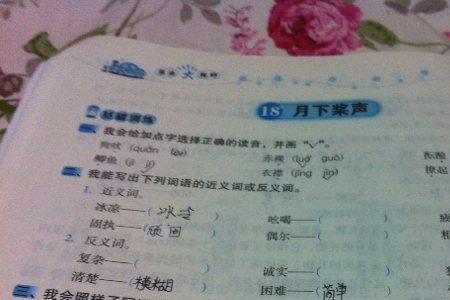 18 月下桨声
基础训练
一、我会给加点字选择正确的读音,并画“√”。
狗吠(quǎn fèi) 赤裸(luǒ guǒ) 酝酿
鲫鱼(jì jǐ) 衣襟(jīng jīn) 撩起
二、我能写出下列词语的近义词或反义词。
1. 近义词。
冰凉——(冰冷) 吆喝——(
固执——(顽固) 偶尔——(
2. 反义词。
复杂——( ) 诚实——(
清楚——(模糊 困难——(简单
三、我会照样子写